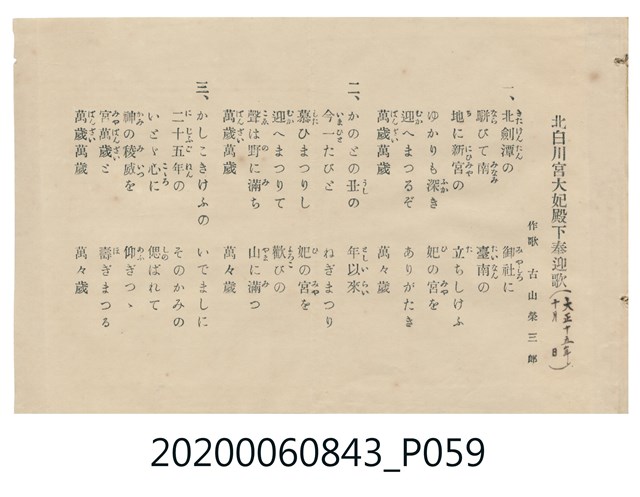 北白川宮大妃殿下奉迎歌(大正十五年十月 日)
作歌 古山榮三郎
一、北劍潭の 御社に
駢びて南 臺南の
地に新宮の 立ちしけふ
ゆかりも深き 妃の宮を
迎へまつるぞ ありがたき
萬歳萬歳 萬々歳
二、かのとの丑の 年以來
今一たびと ねぎまつり
慕ひまつりし 妃の宮を
迎へまつりて 歡びの
聲は野に滿ち 山に滿つ
萬歳萬歳 萬々歳
三、かしこきけふの いでましに
二十五年の そのかみの
いとゞ心に 偲ばれて
神の稜威を 仰ぎつゝ
宮萬歳と 壽ぎまつる
萬歳萬歳 萬々歳
20200060843_P059